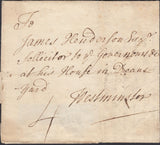 To
James Henderson Esqr
Sollicitor to ye Governours &c
at his House in Deans
Yard
Westminster
4